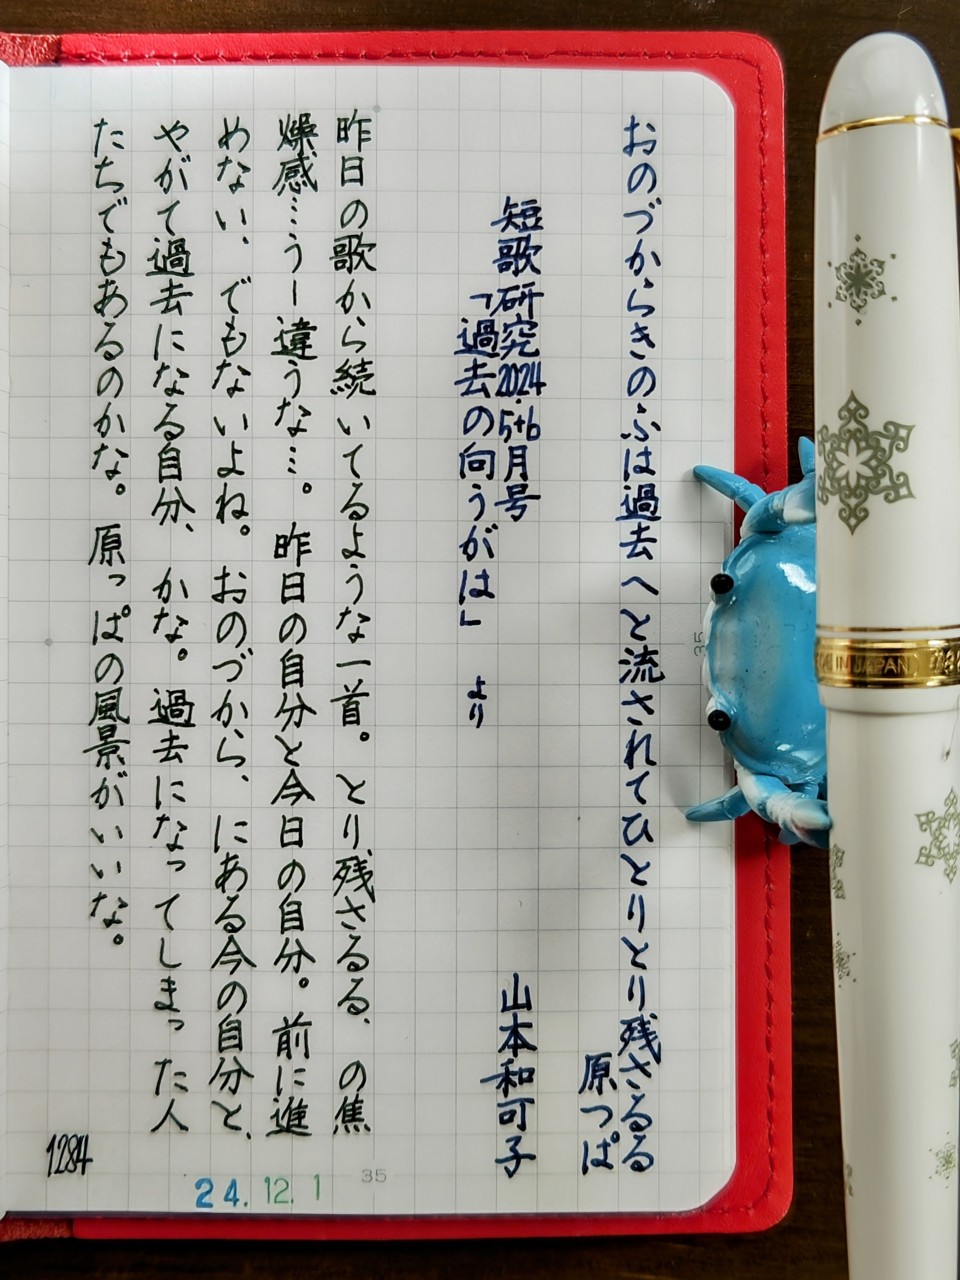 おのづからきのふは過去へと流されてひとりとり残さるる
原つぱ
短歌研究2024.5+6月号
山本和可子
「過去の向うがは」 より
昨日の歌から続いてるような一首。とり残さるる、の焦
燥感…うー違うな…。昨日の自分と今日の自分。前に進
めない、でもないよね。おのづから、にある今の自分と、
やがて過去になる自分、かな。過去になってしまった人
たちでもあるのかな。原っぱの風景がいいな。
1284
24.12.1
35
35
IN JAPAN